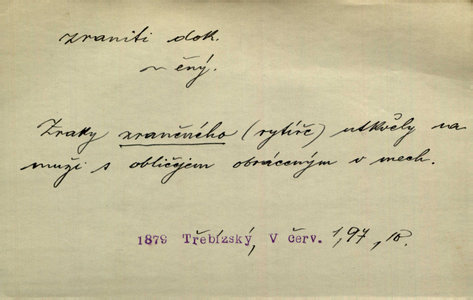 zraniti dok.
~ ěný.
Zraky zraněného (rytíře) utkvěly na
muži s obličejem obráceným v mech.
1879 Třebízský, V červ. 1,97, 10.